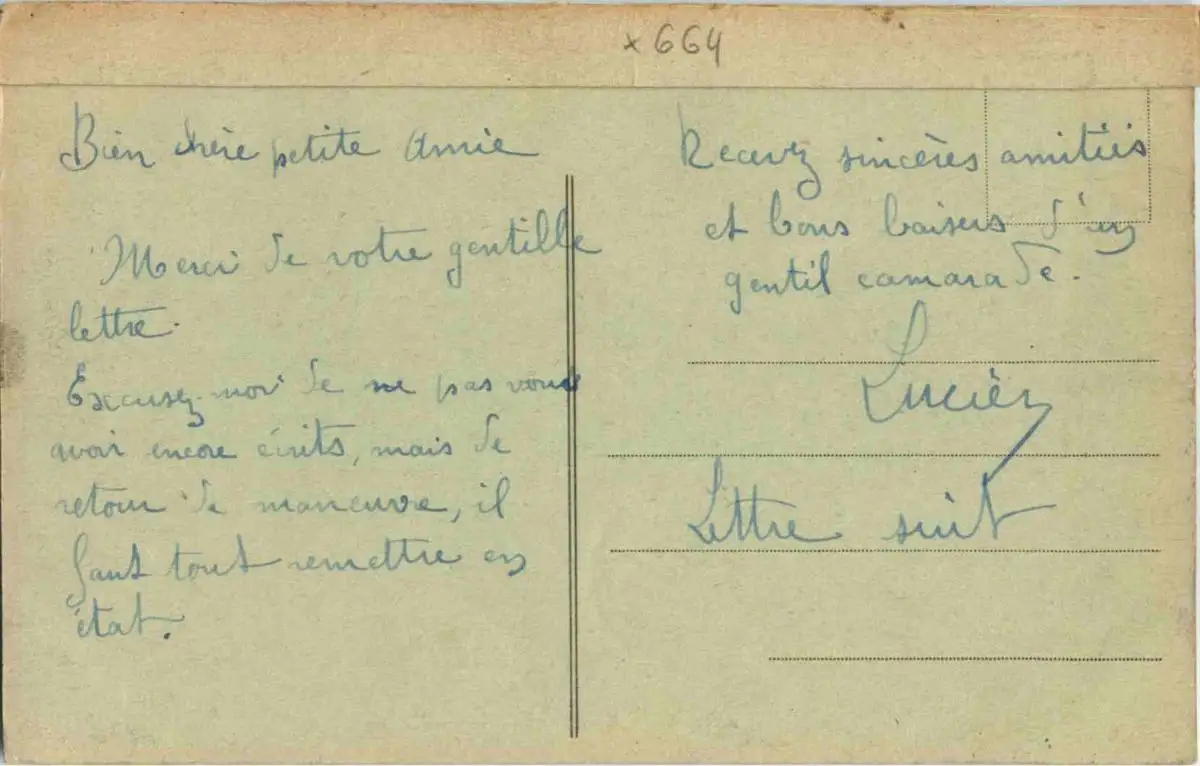 x 664
Bien chère petite Amie
Merci de votre gentille
lettre.
Excusez-moi de ne pas vous
avoir encore écrits, mais de
retour de maneuvre, il
faut tout remettre en
état.
Recevez sincères amitiés
et bons baisers d'un
gentil camarade.
Lucien
Lettre suit